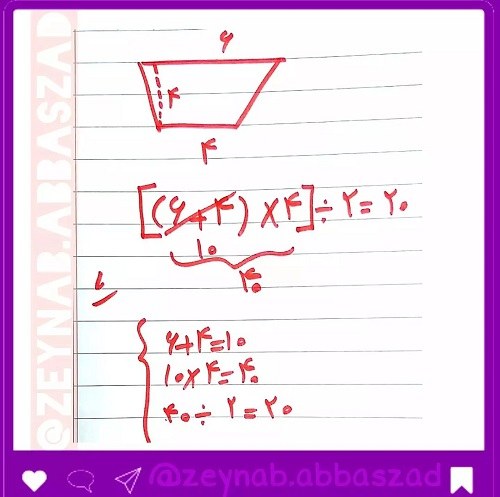 @ZEYNAB.ABBASZAD
۶
۴
۴
[(۶+۴)×۴]÷۲=۲۰
۱۰
۴۰
یا
۶+۴=۱۰
۱۰×۴=۴۰
۴۰÷۲=۲۰
@zeynab.abbaszad